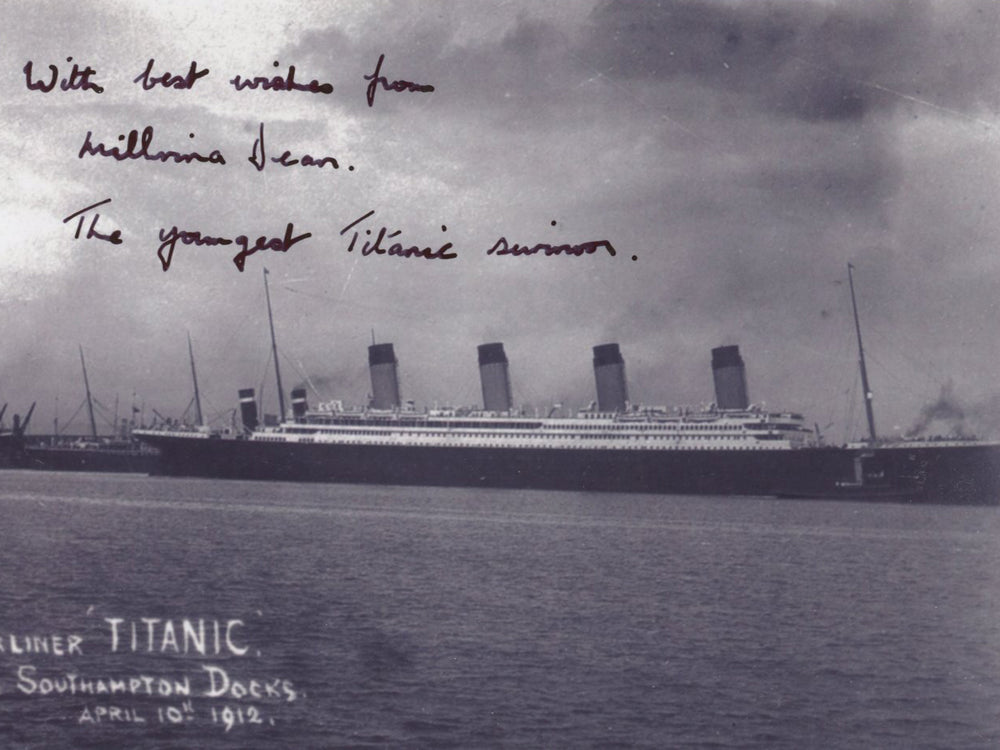 With best wishes from
Millvina Dean.
The youngest Titanic survivor.
LINER 'TITANIC'.
SOUTHAMPTON DOCKS.
APRIL 10TH 1912.